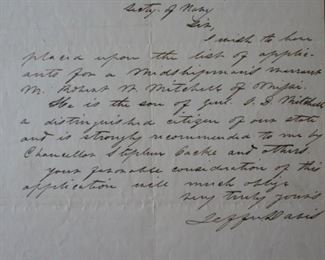 Secty. of Navy
Sir,
I wish to have
placed upon the list of applic-
ants for a Midshipman's warrant
M. Robert W. Mitchell of
He is the son of Genl. D. Mitchell
a distinguished citizen of our state
and is strongly recommended to me by
Chancellor Stephen Cocke and others
your favorable consideration of this
application will much oblige
very truly yours
Jeffn Davis